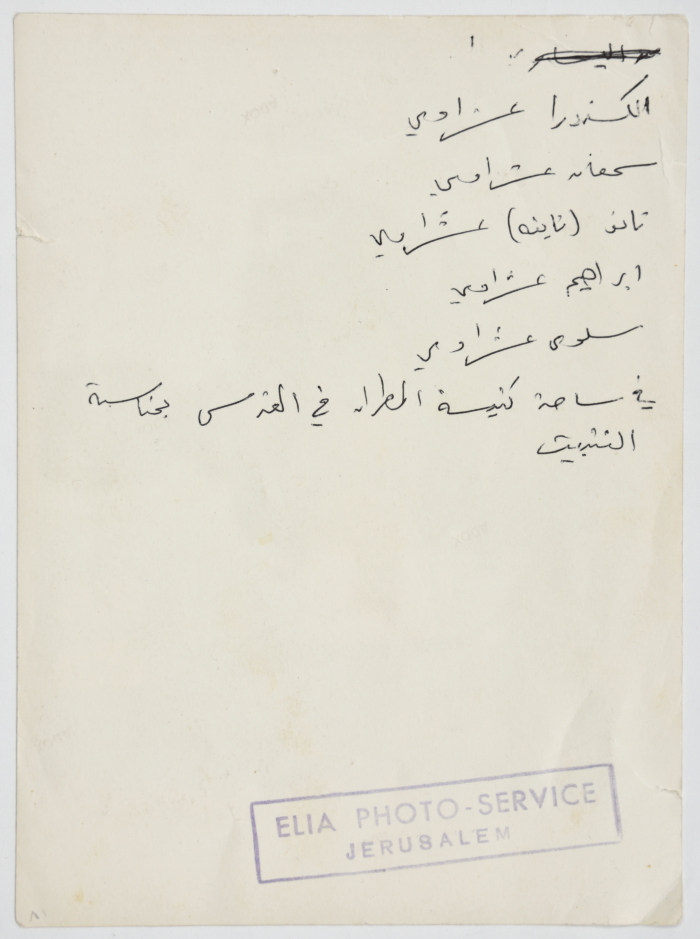 الكسندرا عشراوي
سمعان عشراوي
(ناينه) عشراوي
ابراهيم عشراوي
سلوى عشراوي
في ساحة كنيسة المطران في القدس بمناسبة
التثبيت
ELIA PHOTO-SERVICE
JERUSALEM